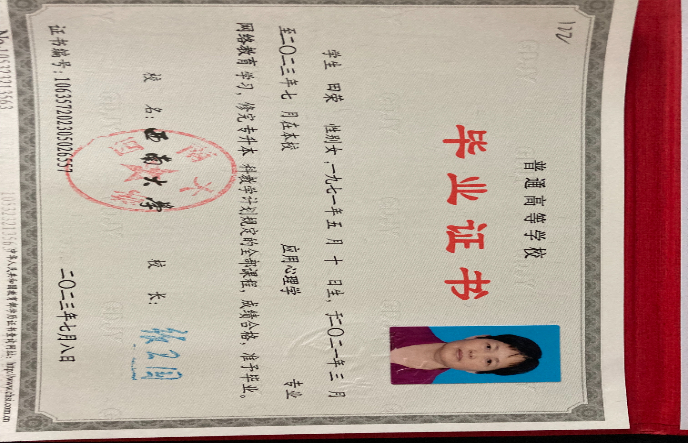 普通高等学校
毕业证书
学生 田荣 性别女,一九七一年五月十日生,于二〇二一年三月
至二〇二三年七月在本校 应用心理学 专业
网络教育学习,修完专升本科教学计划规定的全部课程,成绩合格,准予毕业。
校名:西南大学 校长:
证书编号:106357202305026557 二〇二三年七月八日
中华人民共和国教育部学历证书查询网址:http://www.chsi.com.cn